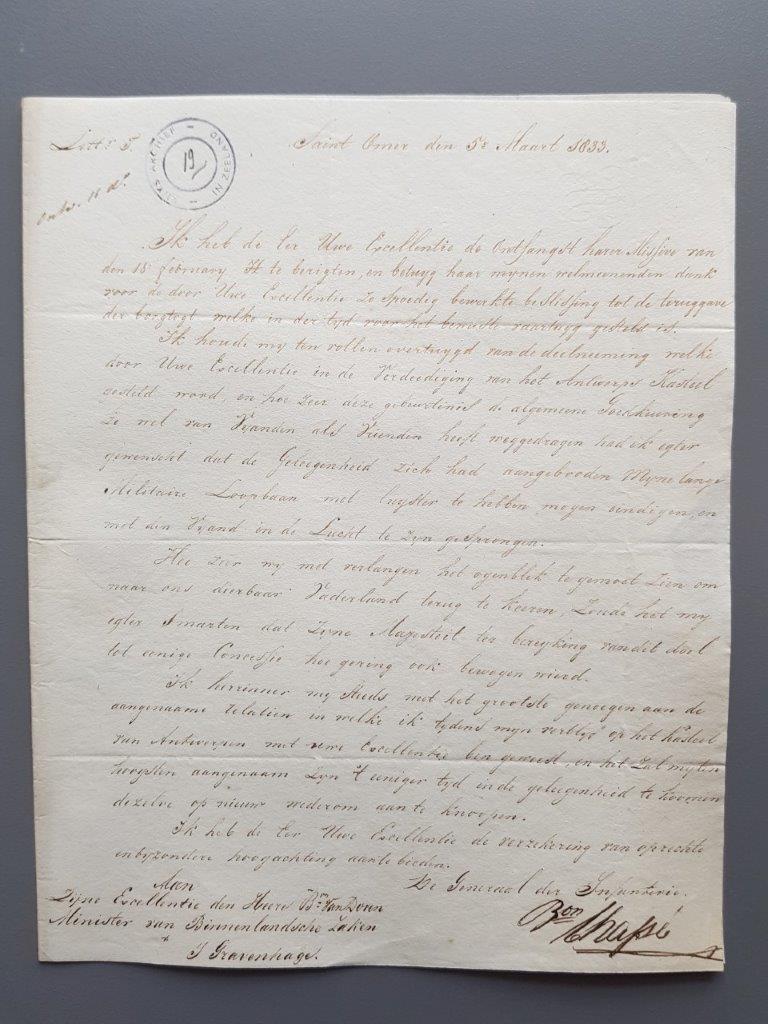 Litt: S.
RIJKS ARCHIEF IN ZEELAND
19
Saint Omer den 5e Maart 1833.
ontv. 11 do
Ik heb de Eer Uwe Excellentie de Ontfangst harer Missive van
den 18 february Jl te berigten, en betuyg haar mynen welmeenenden dank
voor de door Uwe Excellentie zo spoedig bewerkte beslissing tot de teruggave
der borgtogt welke in der tyd voor het bewuste vaartuyg gesteld is.
Ik houde my ten vollen overtuygd van de deelneeming welke
door Uwe Excellentie in de Verdeediging van het Antwerps Kasteel
gesteld word, en hoe zeer deze gebeurtenis de algemeene Goedkeuring
zo wel van Vyanden als Vrienden heeft weggedragen had ik egter
gewenscht dat de Geleegenheid zich had aangebooden Myne lange
Militaire Loopbaan met luyster te hebben mogen eindigen, en
met den Vyand in de Lucht te zyn gesprongen.
Hoe zeer wy met verlangen het ogenblik te gemoet zien om
naar ons dierbaar Vaderland terug te keeren, Zoude het my
egter smarten dat Zyne Majesteit ter bereyking van dit doel
tot eenige Concessie hoe gering ook bewogen wierd.
Ik herinner my steeds met het grootste genoegen aan de
aangenaame relatien in welke ik tydens myn verblyf op het Kasteel
van Antwerpen met uwe Excellentie ben geweest, en het zal my ten
hoogsten aangenaam zyn 't eeniger tyd in de geleegenheid te koomen
dezelve op nieuw wederom aan te knoopen.
Ik heb de Eer Uwe Excellentie de verzekering van oprechte
en byzondere hoogachting aan te bieden.
De Generaal der Infanterie.
Bon Chassé
Aan
Zijne Excellentie den Heere Bon Van Doorn
Minister van Binnenlandsche Zaken
S Gravenhage.